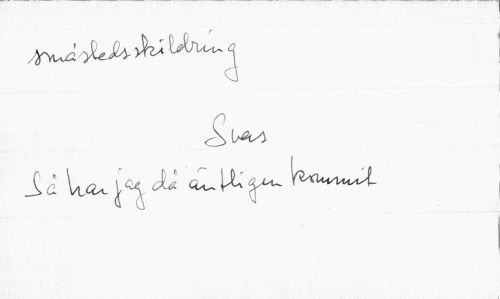 småstadsskildring
Svas
Så har jag då äntligen kommit